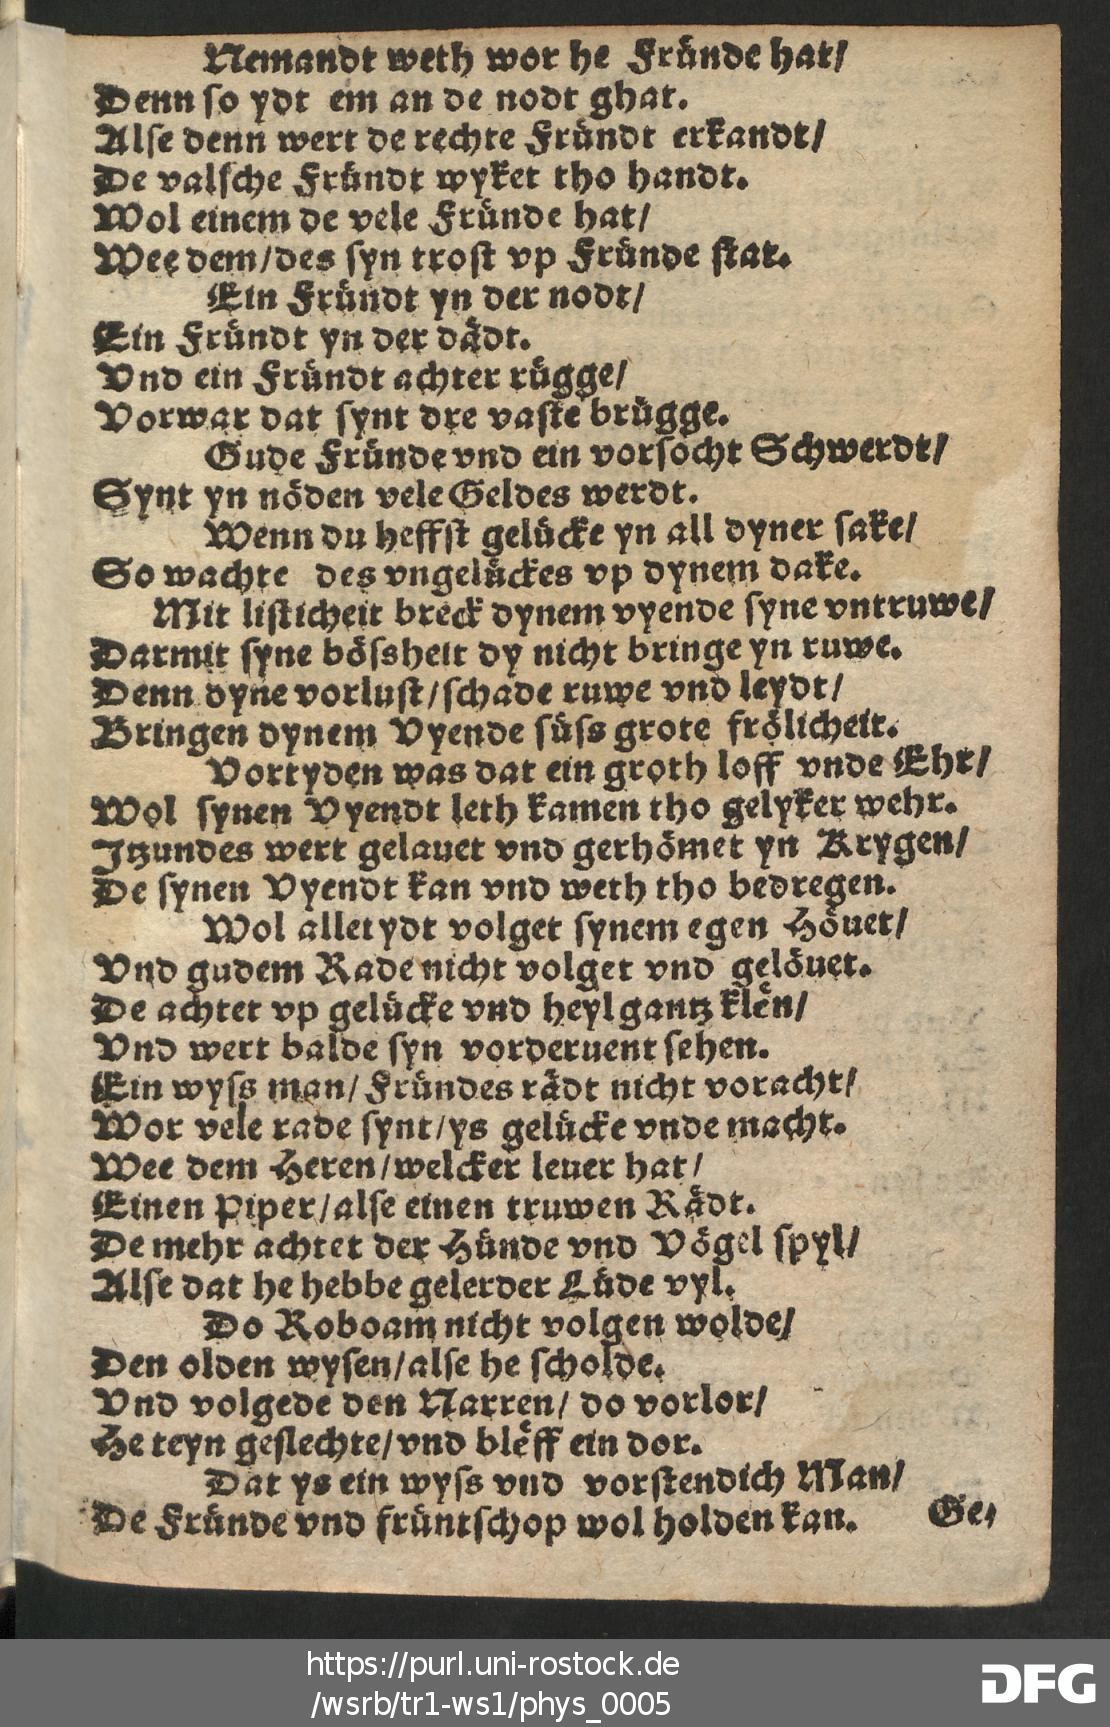 Nemandt weth wor he Fründe hat/
Denn so ydt em an de nodt ghat.
Alse denn wert de rechte Fründt erkandt/
De valsche Fründt wyket tho handt.
Wol einem de vele Fründe hat/
Wee dem/des syn trost vp Fründe stat.
Ein Fründt yn der nodt/
Ein Fründt yn der dådt.
Vnd ein Fründt achter rügge/
Vorwar dat synt dre vaste brügge.
Gude Fründe vnd ein vorsocht Schwerdt/
Synt yn nöden vele Geldes werdt.
Wenn du heffst gelücke yn all dyner sake/
So wachte des vngelückes vp dynem dake.
Mit listicheit breck dynem vyende syne vntruwe/
Darmit syne bössheit dy nicht bringe yn ruwe.
Denn dyne vorlust/schade ruwe vnd leydt/
Bringen dynem Vyende süss grote frölicheit.
Vortyden was dat ein groth loff vnde Ehr/
Wol synen Vyendt leth kamen tho gelyker wehr.
Itzundes wert gelauet vnd gerhömet yn Krygen/
De synen Vyendt kan vnd weth tho bedregen.
Wol alletydt volget synem egen Höuet/
Vnd gudem Rade nicht volget vnd gelöuet.
De achtet vp gelücke vnd heyl gantz klën/
Vnd wert balde syn vorderuent sehen.
Ein wyss man/ Fründes rådt nicht voracht/
Wor vele rade synt/ys gelücke vnde macht.
Wee dem Heren/welcker leuer hat/
Einen Piper/alse einen truwen Rådt.
De mehr achtet der Hünde vnd Vögel spyl/
Alse dat he hebbe gelerder Lüde vyl.
Do Roboam nicht volgen wolde/
Den olden wysen/alse he scholde.
Vnd volgede den Narren/ do vorlor/
He teyn geslechte/vnd blëff ein dor.
Dat ys ein wyss vnd vorstendich Man/
De Fründe vnd früntschop wol holden kan.
Ge-
https://purl.uni-rostock.de
/wsrb/tr1-ws1/phys_0005
DFG